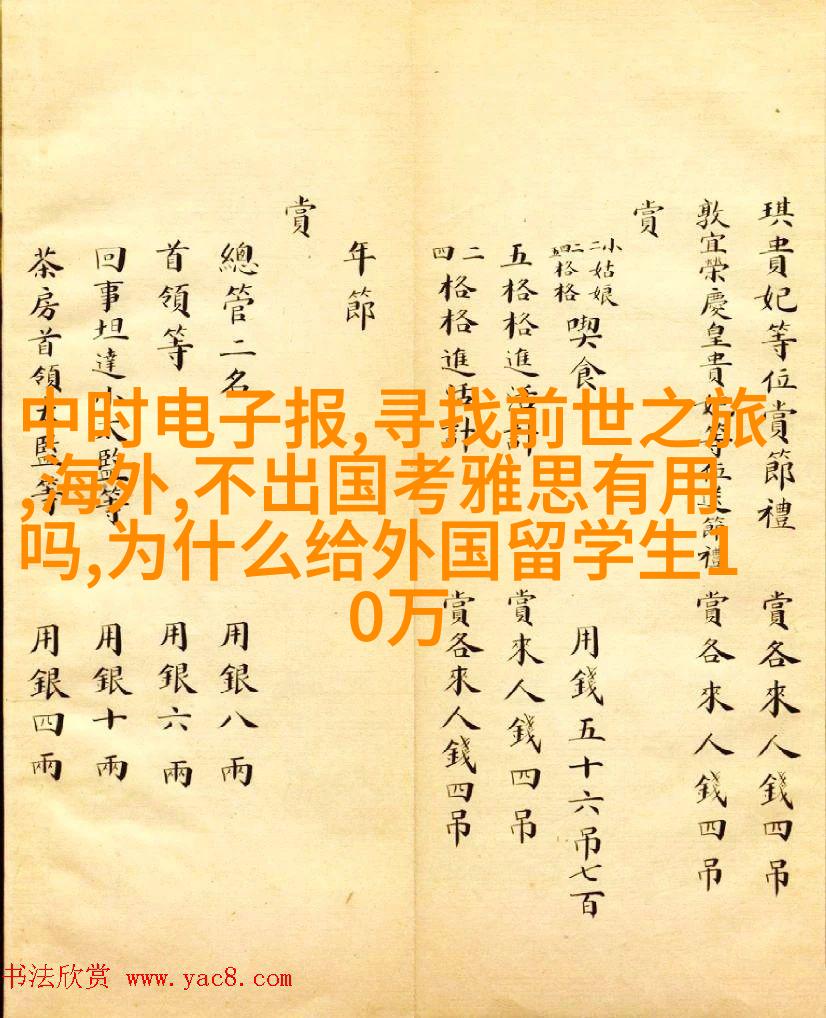 琪貴妃等位賞節禮 賞各來人錢四吊
敦宜榮慶皇貴妃等位送節禮 賞各來人錢四吊
賞
小姑娘
二二格格
四格格
喫食 用錢五十六吊七百
五格格進活計 賞來人錢四吊
二
四格格進活計 賞各來人錢四吊
年節
賞
總管二名 用銀八兩
首領等 用銀六兩
回事坦達小太監等 用銀十兩
茶房首領太監等 用銀四兩
中时电子报,寻找前世之旅
,海外,不出国考雅思有用
吗,为什么给外国留学生1
0万
书法欣赏 www.yac8.com